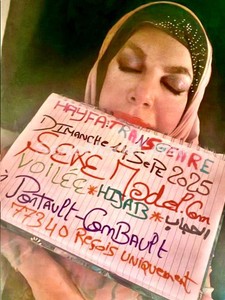 HAYFA TRANSGENRE
DIMANCHE 14 SEPT 2025
SEXE MODEL.Com
VOILÉE * HIJAB * الحجاب
Pontault-Combault
77340 RÉELS UNIQUEMENT